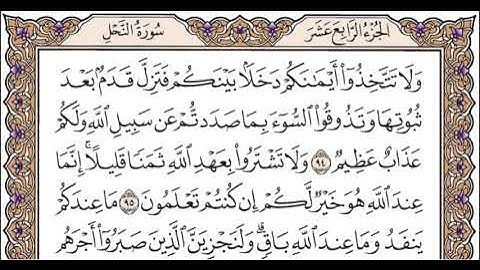 سُورَةُ النَّحْلِ الجُزْءُ الرَّابِعَ عَشَرَ
وَلَا تَتَّخِذُوٓا۟ أَيْمَٰنَكُمْ دَخَلًۢا بَيْنَكُمْ فَتَزِلَّ قَدَمٌۢ بَعْدَ
ثُبُوتِهَا وَتَذُوقُوا۟ ٱلسُّوٓءَ بِمَا صَدَدتُّمْ عَن سَبِيلِ ٱللَّهِ وَلَكُمْ
عَذَابٌ عَظِيمٌ ٩٤ وَلَا تَشْتَرُوا۟ بِعَهْدِ ٱللَّهِ ثَمَنًا قَلِيلًا ۚ إِنَّمَا
عِندَ ٱللَّهِ هُوَ خَيْرٌ لَّكُمْ إِن كُنتُمْ تَعْلَمُونَ ٩٥ مَا عِندَكُمْ
يَنفَدُ وَمَا عِندَ ٱللَّهِ بَاقٍ ۗ وَلَنَجْزِيَنَّ ٱلَّذِينَ صَبَرُوٓا۟ أَجْرَهُم